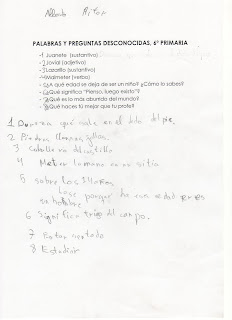 Alberto
PALABRAS Y PREGUNTAS DESCONOCIDAS, 6º PRIMARIA
-1 Juanete (sustantivo)
-2 Jovial (adjetivo)
-3 Lazarillo (sustantivo)
-4 Malmeter (verbo)
-5 ¿A qué edad se deja de ser un niño? ¿Cómo lo sabes?
-6 ¿Qué significa "Pienso, luego existo"?
-7 ¿Qué es lo más aburrido del mundo?
-8 ¿Qué haces tú mejor que tu profe?
1 que sale en el dedo del pie
2 Piedras
3 Caballero del castillo
4 Meter la mano en un sitio
5 sobre los
porque ha esa edad eres
un hombre
6 Significa trigo del campo.
7 Estar sentado
8 Estudiar